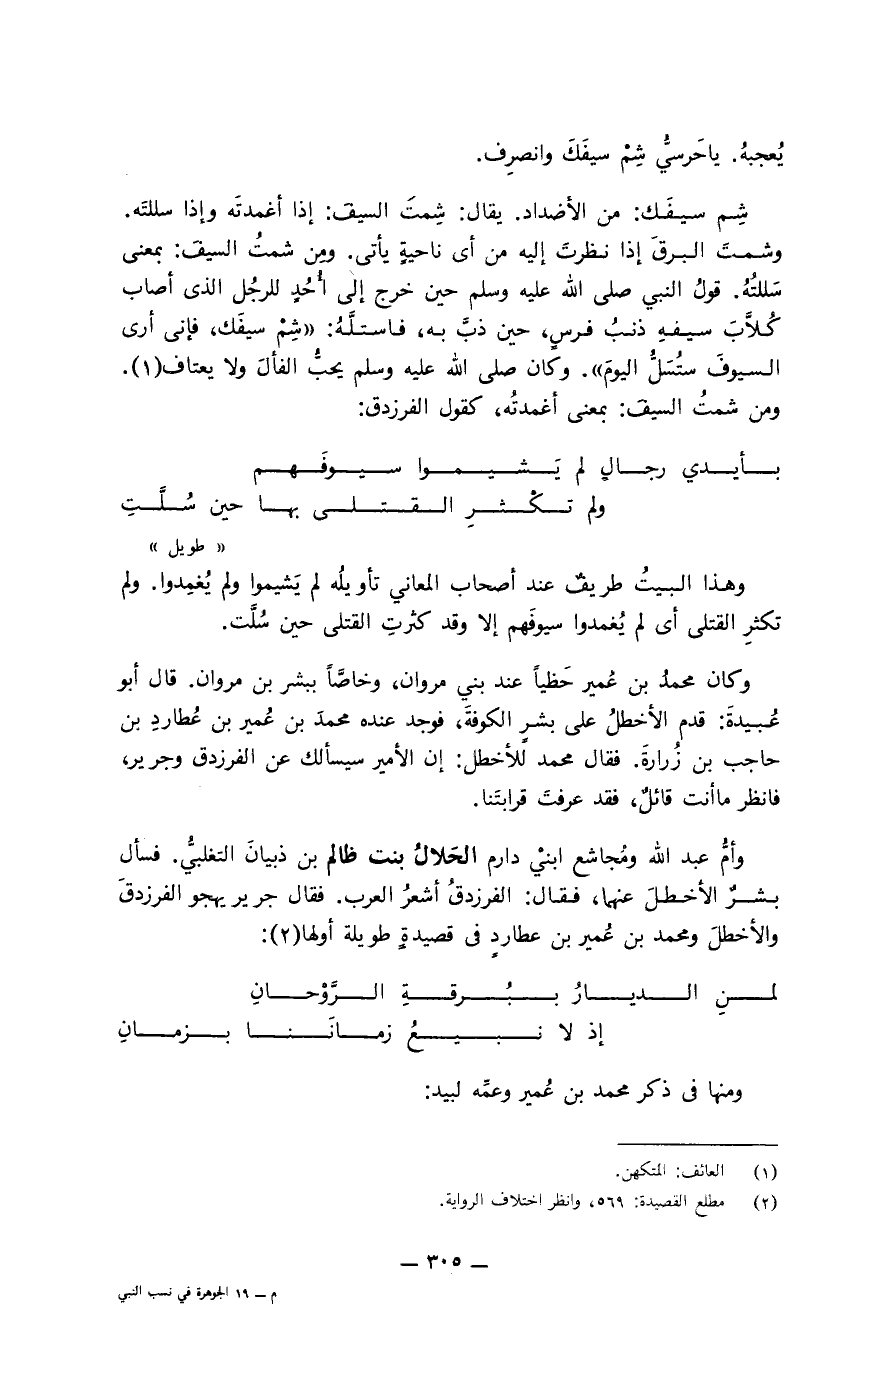 يُعجبهُ. ياحَرسيُّ شِمْ سيفَكَ وانصرِف.
شِم سيفَك: من الأضداد. يقال: شِمتَ السيفَ: إذا أغمدتَه وإذا سللتَه.
وشمتَ البرقَ إذا نظرتَ إليه من أى ناحيةٍ يأتى. ومِن شمتُ السيفَ: بمعنى
سَللتُهُ. قولُ النبي صلى الله عليه وسلم حين خرج إلى أُحُدٍ للرجُل الذى أصاب
كُلاَّبَ سيفهِ ذنبُ فرسٍ، حين ذبَّ به، فاستلَّهُ: «شِمْ سيفَك، فإنى أرى
السيوفَ ستُسَلُّ اليومَ». وكان صلى الله عليه وسلم يحبُّ الفألَ ولا يعتاف(١).
ومن شمتُ السيفَ: بمعنى أغمدتُه، كقول الفرزدق:
بأيدي رجالٍ لم يَشيموا سيوفَهم
ولم تكْثرِ القتلى بها حين سُلَّتِ
« طويل »
وهذا البيتُ طريفٌ عند أصحاب المعاني تأويلُه لم يَشيموا ولم يُغمِدوا. ولم
تكثرِ القتلى أى لم يُغمدوا سيوفَهم إلا وقد كثرتِ القتلى حين سُلَّت.
وكان محمدُ بن عُمير حَظياً عند بني مروان، وخاصَّاً ببشر بن مروان. قال أبو
عُبيدةَ: قدم الأخطلُ على بشرٍ الكوفةَ، فوجد عنده محمدَ بن عُمير بن عُطاردِ بن
حاجب بن زُرارةَ. فقال محمد للأخطل: إن الأمير سيسألك عن الفرزدق وجرير،
فانظر ماأنت قائلٌ، فقد عرفتَ قرابتَنا.
وأمُّ عبد الله ومُجاشع ابنيْ دارم الحَلالُ بنت ظالم بن ذبيانَ التغلبيُّ. فسأل
بشرٌ الأخطلَ عنها، فقال: الفرزدقُ أشعرُ العرب. فقال جرير يهجو الفرزدقَ
والأخطلَ ومحمد بن عُمير بن عطاردٍ فى قصيدةٍ طويلة أولها(٢):
لمنِ الديارُ ببُرقةِ الرَّوْحانِ
إذ لا نبيعُ زمانَنا بزمانِ
ومنها فى ذكر محمد بن عُمير وعمِّه لبيد:
(١) العائف: المتكهن.
(٢) مطلع القصيدة: ٥٦٩، وانظر اختلاف الرواية.
— ٣٠٥ —
م — ١٩ الجوهرة في نسب النبي